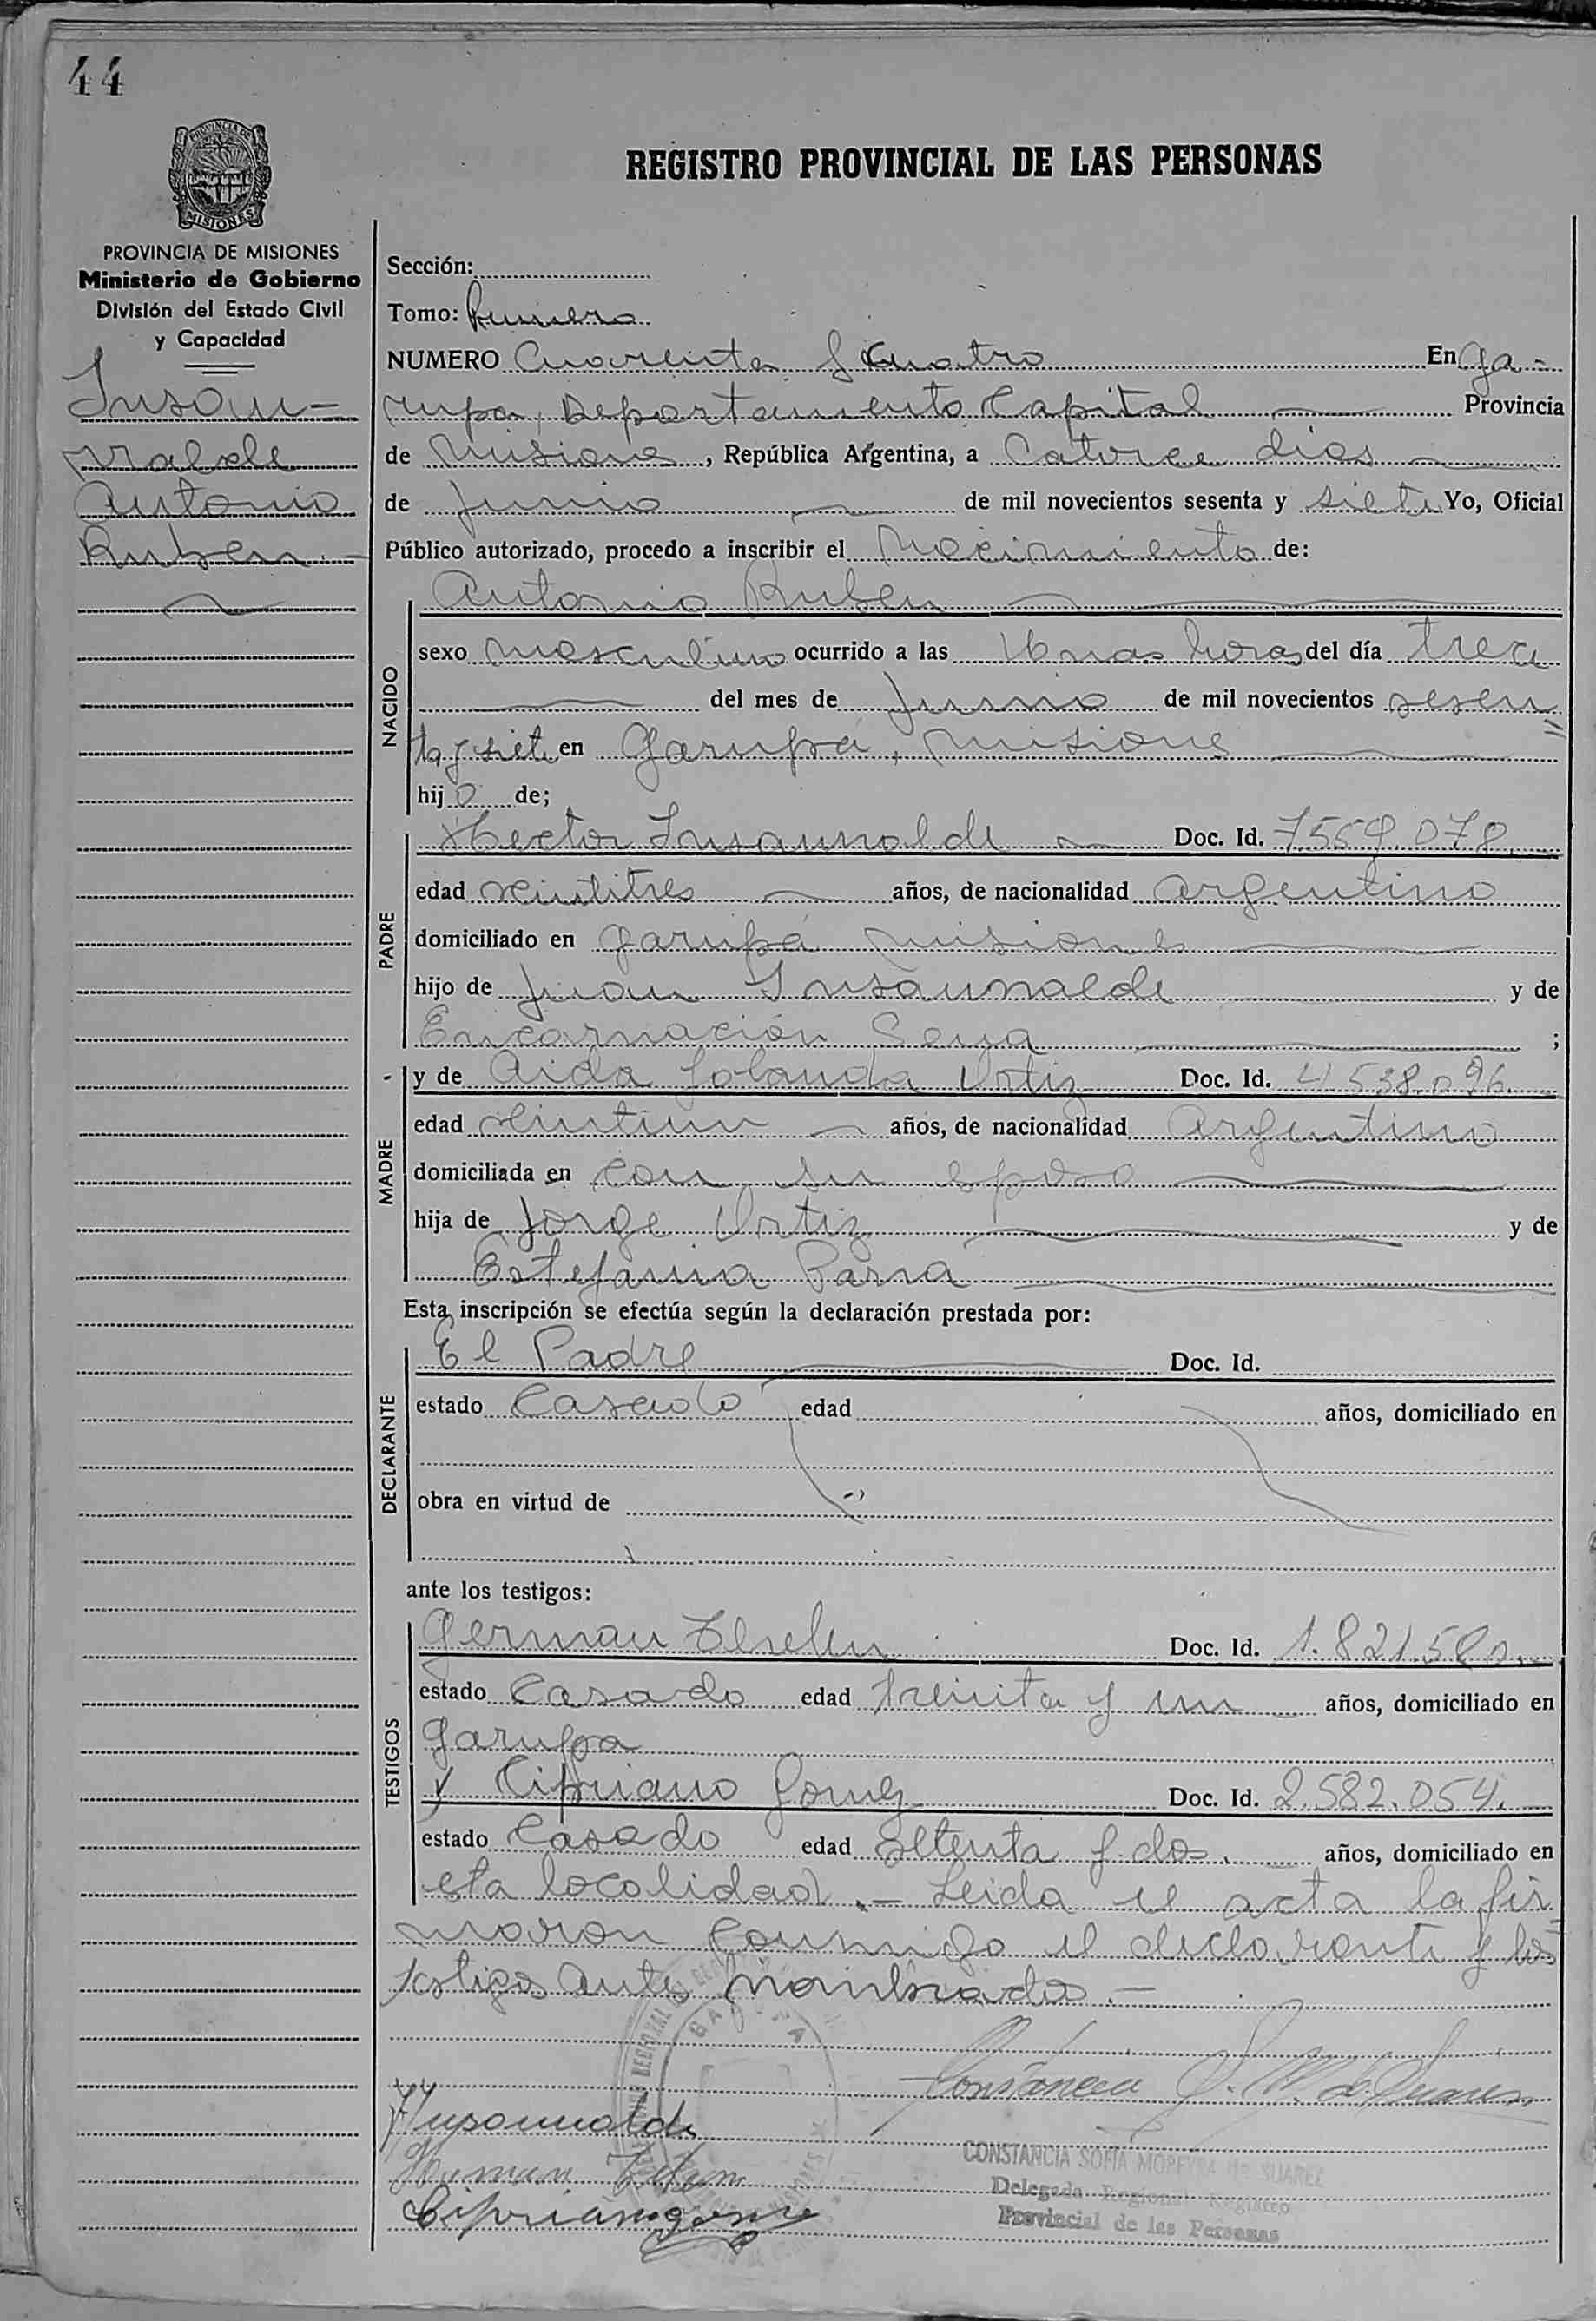 44
PROVINCIA DE
MISIONES
REGISTRO PROVINCIAL DE LAS PERSONAS
PROVINCIA DE MISIONES
Ministerio de Gobierno
División del Estado Civil
y Capacidad
Insau-
rralde
Antonio
Ruben.-
Sección:
Tomo: Primero
NUMERO Cuarenta y Cuatro En Ga-
rupa, Departamento Capital Provincia
de Misiones, República Argentina, a Catorce dias
de Junio de mil novecientos sesenta y siete Yo, Oficial
Público autorizado, procedo a inscribir el Nacimiento de:
Antonio Ruben
NACIDO
sexo masculino ocurrido a las horas del día trece
del mes de Junio de mil novecientos sesen=
ta y siete en Garupá, Misiones
hijo de;
Hector Insaurralde Doc. Id. 7559.078.
PADRE
edad veintitres años, de nacionalidad argentino
domiciliado en Garupá Misiones
hijo de Juan Insaurralde y de
Encarnación ;
y de Aida Iolanda Ortiz Doc. Id. 4.538.096.
MADRE
edad veintiun años, de nacionalidad Argentino
domiciliada en con su esposo
hija de Jorge Ortiz y de
Estefania Parra
Esta inscripción se efectúa según la declaración prestada por:
El Padre Doc. Id.
DECLARANTE
estado Casado edad años, domiciliado en
obra en virtud de
ante los testigos:
German Doc. Id. 1.821.580.
TESTIGOS
estado Casado edad treinta y un años, domiciliado en
Garupa
y Cipriano Gomez Doc. Id. 2.582.054.
estado Casado edad setenta y dos. años, domiciliado en
esta localidad.- Leida el acta la fir=
maron conmigo el declarante y los
testigos antes nombrados.-
GARUPA
Constancia S. M. de Suarez
Insaurralde
CONSTANCIA SOFIA MOREYRA DE SUAREZ
German
Delegada Regional Registro
Cipriano Gomez
Provincial de las Personas